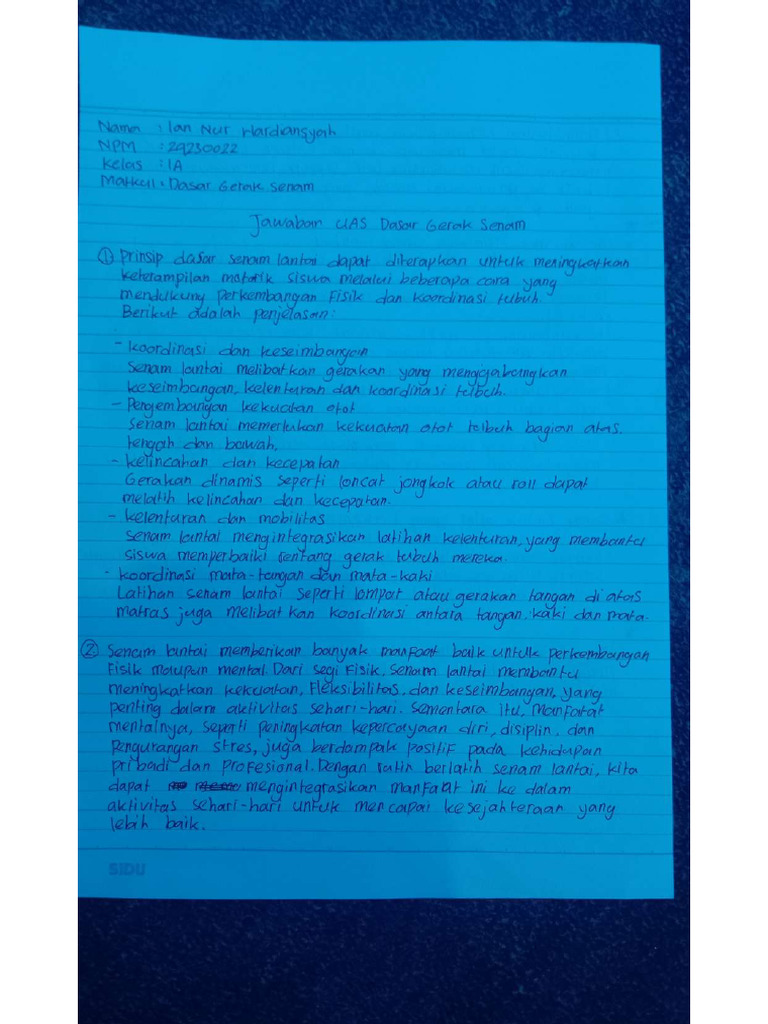 Nama : Ian Nur Hardiansyah
NPM : 29230022
Kelas : 1A
Matkul : Dasar Gerak Senam
Jawaban UAS Dasar Gerak Senam
① Prinsip dasar senam lantai dapat diterapkan untuk meningkatkan
keterampilan motorik siswa melalui beberapa cara yang
mendukung perkembangan fisik dan koordinasi tubuh.
Berikut adalah penjelasan :
- koordinasi dan keseimbangan
Senam lantai melibatkan gerakan yang menggabungkan
keseimbangan, kelenturan dan koordinasi tubuh.
- Pengembangan kekuatan otot
Senam lantai memerlukan kekuatan otot tubuh bagian atas,
tengah dan bawah.
- kelincahan dan kecepatan
Gerakan dinamis seperti loncat jongkok atau roll dapat
melatih kelincahan dan kecepatan.
- kelenturan dan mobilitas
Senam lantai mengintegrasikan latihan kelenturan, yang membantu
siswa memperbaiki rentang gerak tubuh mereka.
- koordinasi mata-tangan dan mata-kaki
Latihan senam lantai seperti lompat atau gerakan tangan di atas
matras juga melibatkan koordinasi antara tangan, kaki dan mata.
② Senam lantai memberikan banyak manfaat baik untuk perkembangan
fisik maupun mental. Dari segi fisik, senam lantai membantu
meningkatkan kekuatan, fleksibilitas, dan keseimbangan, yang
penting dalam aktivitas sehari-hari. Sementara itu, manfaat
mentalnya, seperti peningkatan kepercayaan diri, disiplin, dan
pengurangan stres, juga berdampak positif pada kehidupan
pribadi dan profesional. Dengan rutin berlatih senam lantai, kita
dapat mengintegrasikan manfaat ini ke dalam
aktivitas sehari-hari untuk mencapai kesejahteraan yang
lebih baik.
SIDU